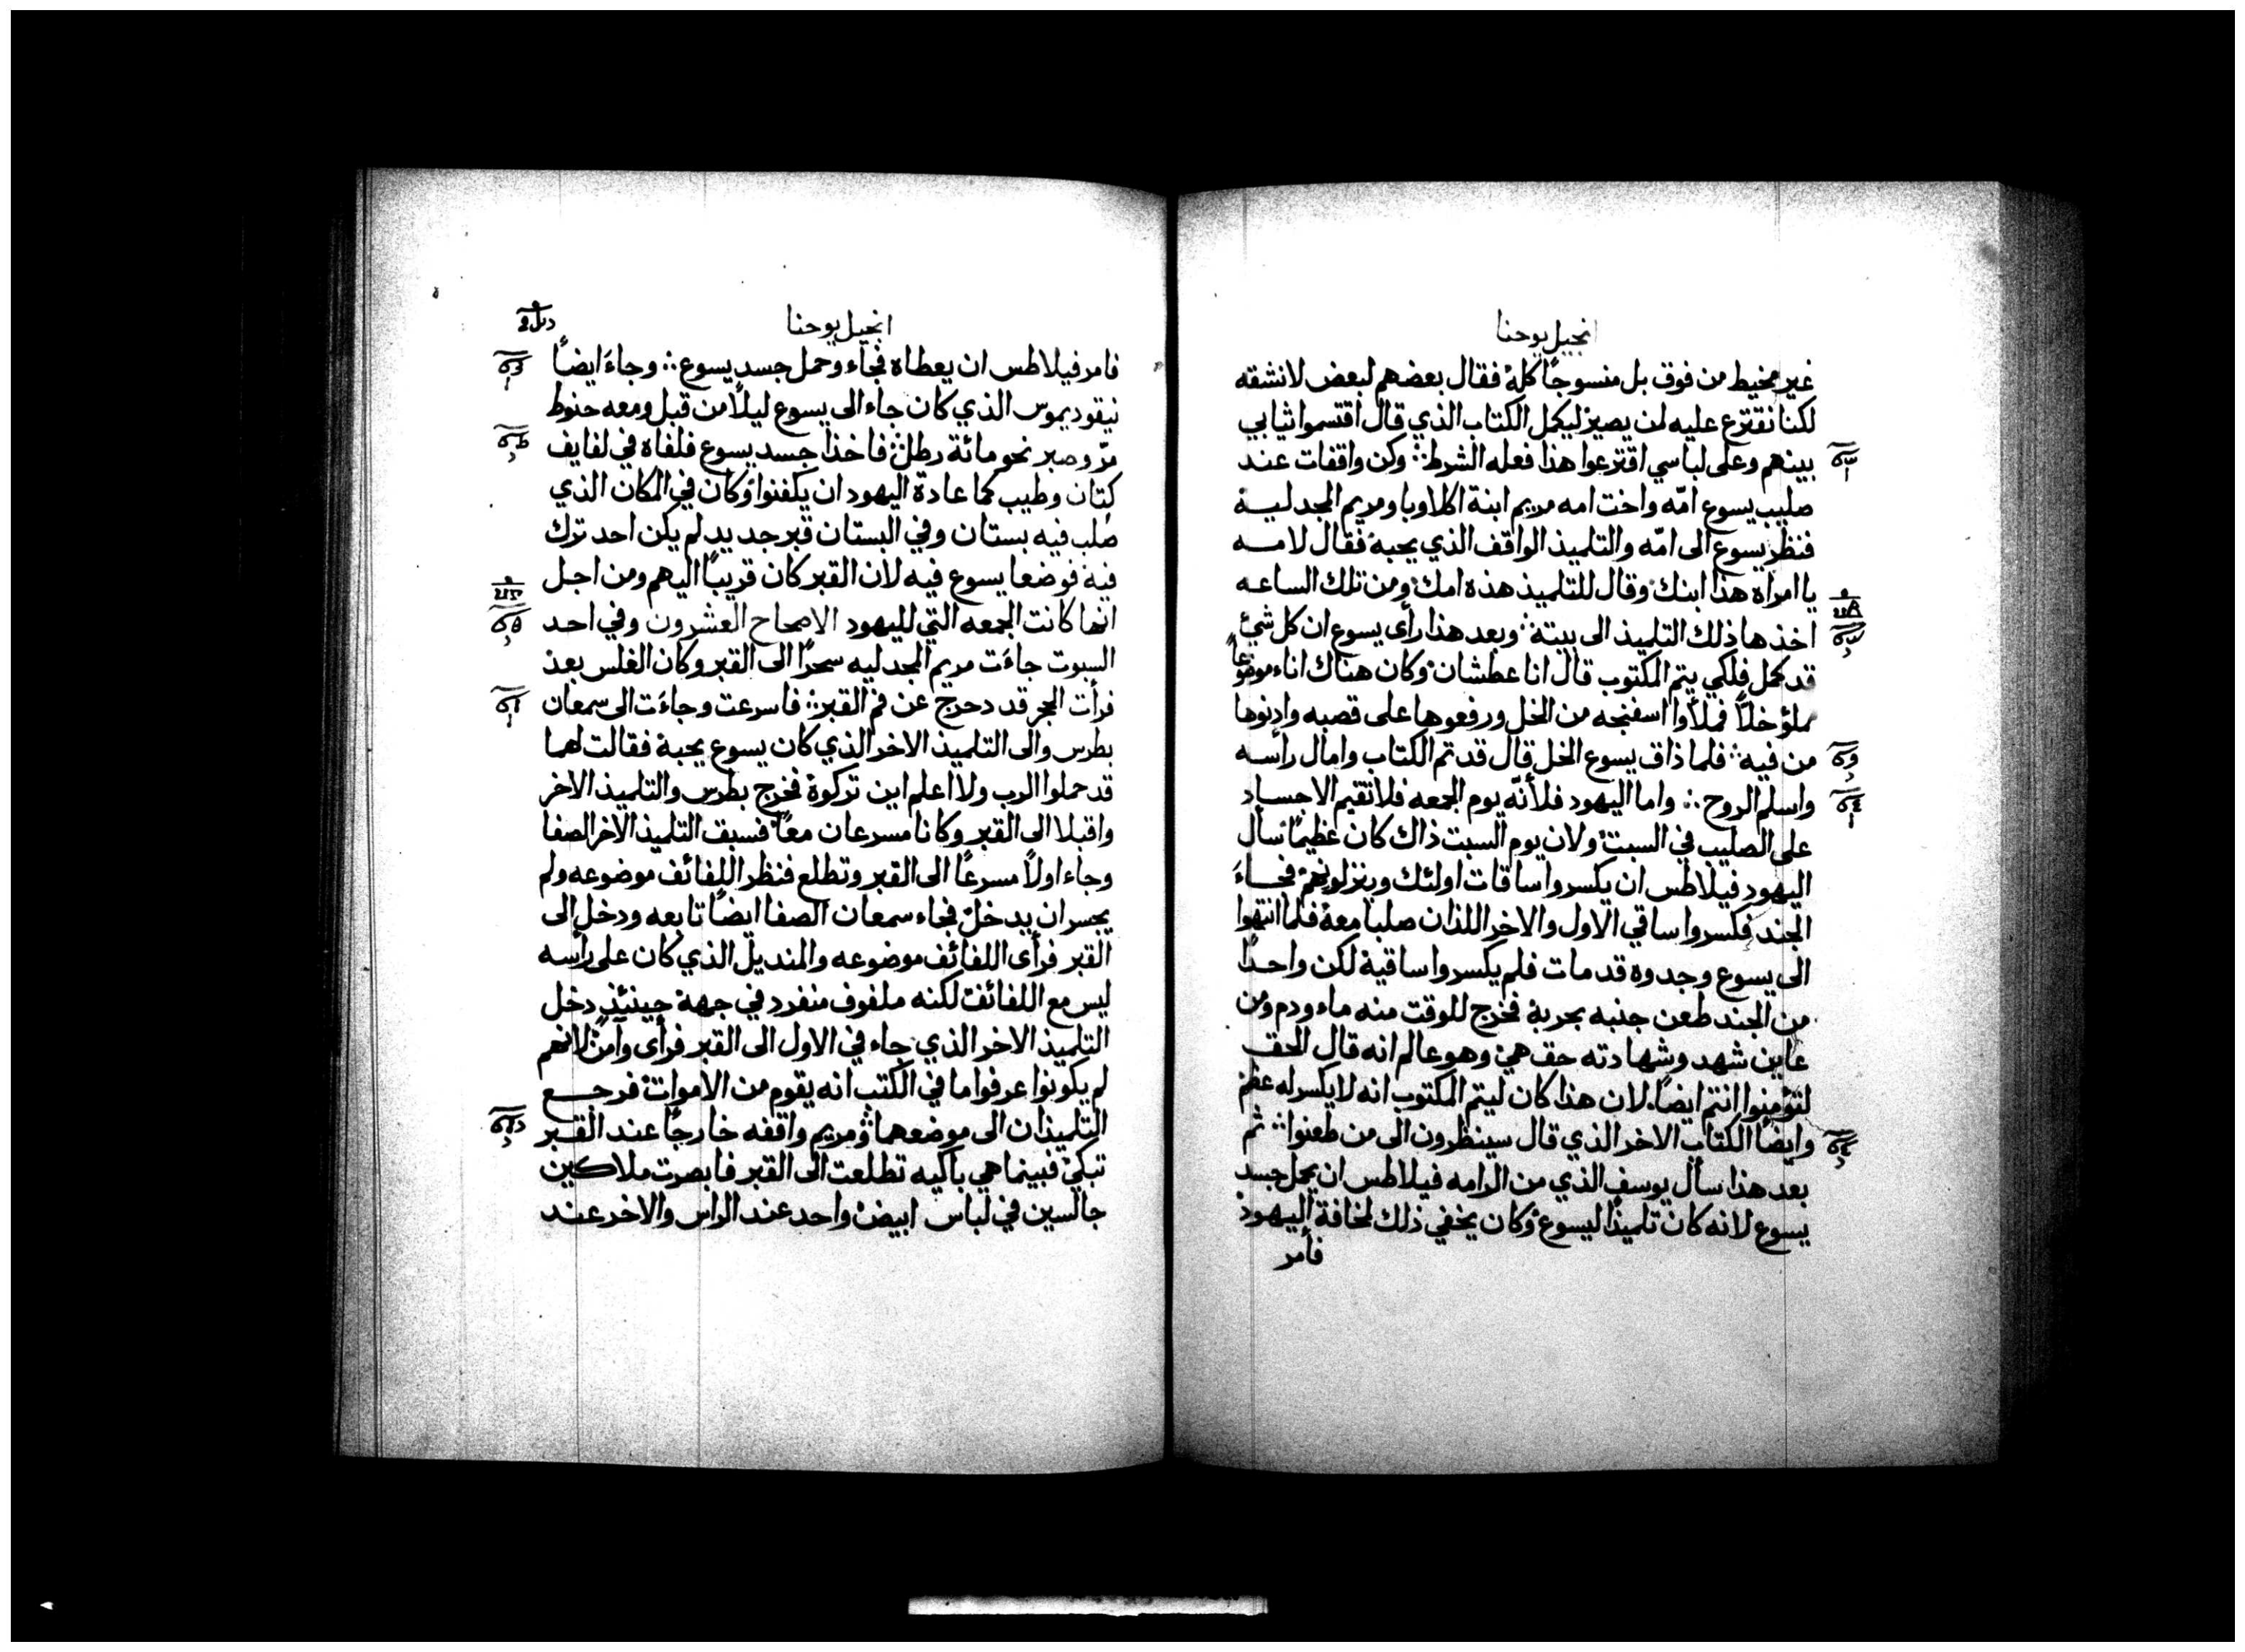 انجيل يوحنا
غير مخيط من فوق بل منسوجًا كله فقال بعضهم لبعض لا نشقه
لكنا نقترع عليه لمن يصير ليكمل الكتاب الذي قال اقتسموا ثيابي
بينهم وعلى لباسي اقترعوا هذا فعله الشرط وكن واقفات عند
صليب يسوع امّه واخت امه مريم ابنة اكلاوبا ومريم المجدليه
فنظر يسوع الى امّه والتلميذ الواقف الذي يحبه فقال لامه
يا امراه هذا ابنك وقال للتلميذ هذه امك ومن تلك الساعه
اخذها ذلك التلميذ الى بيته وبعد هذا رأى يسوع ان كل شيئ
قد كمل فلكي يتم المكتوب قال انا عطشان وكان هناك اناء موضوعًا
مملؤ خلًا فملأوا اسفنجه من الخل ورفعوها على قصبه وادنوها
من فيه فلما ذاق يسوع الخل قال قد تم الكتاب وامال رأسه
واسلم الروح ∴ واما اليهود فلأنّه يوم الجمعه فلا تقيم الاجساد
على الصليب في السبت ولان يوم السبت ذاك كان عظيمًا سأل
اليهود فيلاطس ان يكسروا ساقات اولئك وينزلونهم فجاءَ
الجند فكسروا ساقي الاول والاخر اللذان صلبا معه فلما انتهوا
الى يسوع وجدوه قد مات فلم يكسروا ساقيه لكن واحدًا
من الجند طعن جنبه بحربة فخرج للوقت منه ماء ودم ومن
عاين شهد وشهادته حق هي وهو عالم انه قال الحق
لتؤمنوا انتم ايضًا لان هذا كان ليتم المكتوب انه لا يكسر له عظم
وايضًا الكتاب الاخر الذي قال سينظرون الى من طعنوا ثم
بعد هذا سأل يوسف الذي من الرامه فيلاطس ان يحمل جسد
يسوع لانه كان تلميذًا ليسوع وكان يخفي ذلك لمخافة اليهود
فأمر
انجيل يوحنا
فامر فيلاطس ان يعطاه فجاء وحمل جسد يسوع ∴ وجاءَ ايضًا
نيقوديموس الذي كان جاء الى يسوع ليلًا من قبل ومعه حنوط
مرّ وصبر نحو مائة رطل فاخذا جسد يسوع فلفاه في لفايف
كتان وطيب كما عادة اليهود ان يكفنوا وكان في المكان الذي
صلب فيه بستان وفي البستان قبر جديد لم يكن احد ترك
فيه فوضعا يسوع فيه لان القبر كان قريبًا اليهم ومن اجل
انها كانت الجمعه التي لليهود الاصحاح العشرون وفي احد
السبوت جاءَت مريم المجدليه سحرًا الى القبر وكان الغلس بعد
فرأت الحجر قد دحرج عن فم القبر ∴ فاسرعت وجاءَت الى سمعان
بطرس والى التلميذ الاخر الذي كان يسوع يحبه فقالت لهما
قد حملوا الرب ولا اعلم اين تركوه فخرج بطرس والتلميذ الاخر
واقبلا الى القبر وكانا مسرعان معًا فسبق التلميذ الاخر الصفا
وجاء اولًا مسرعًا الى القبر وتطلع فنظر اللفائف موضوعه ولم
يجسر ان يدخل فجاء سمعان الصفا ايضًا تابعه ودخل الى
القبر فرأى اللفائف موضوعه والمنديل الذي كان على رأسه
ليس مع اللفائف لكنه ملفوف منفرد في جهة حينئذ دخل
التلميذ الاخر الذي جاء في الاول الى القبر فرأى وآمن لانهم
لم يكونوا عرفوا ما في الكتب انه يقوم من الاموات فرجع
التلميذان الى موضعهما ومريم واقفه خارجًا عند القبر
تبكي فبينما هي باكيه تطلعت الى القبر فابصرت ملاكين
جالسين في لباس ابيض واحد عند الراس والاخر عند